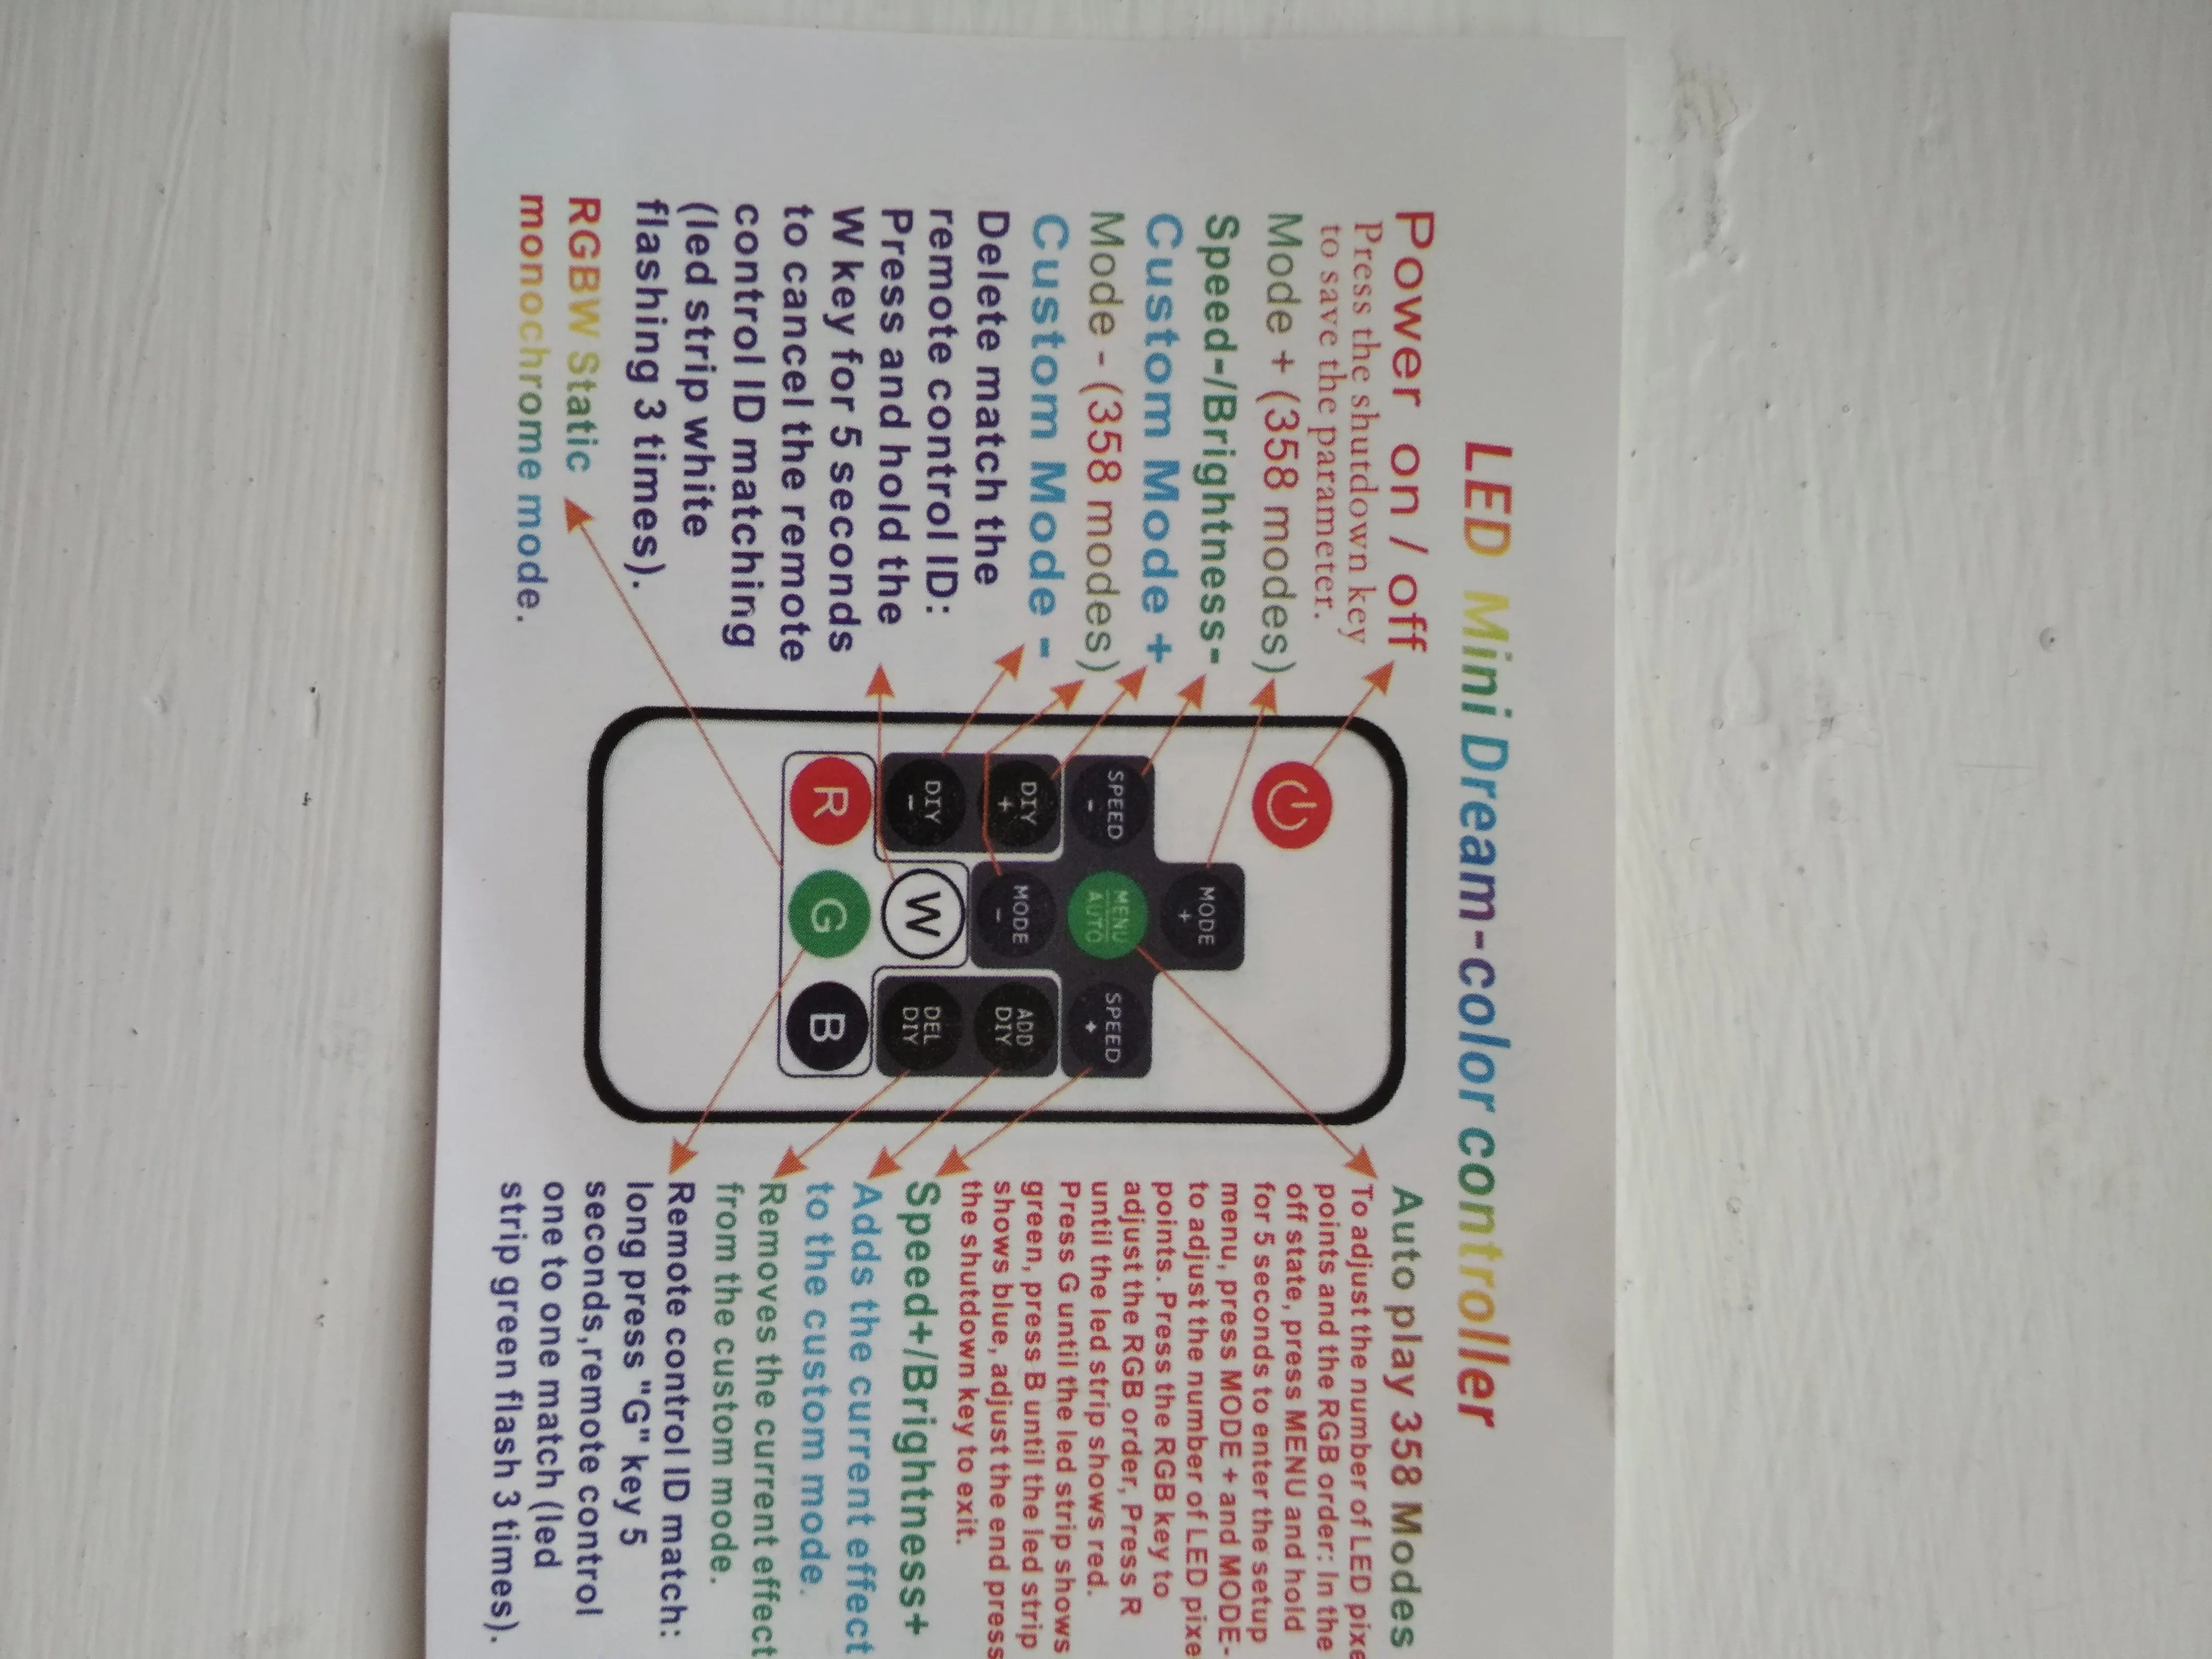 LED Mini Dream-color controller
Power on / off
Press the shutdown key
to save the parameter.
Mode + (358 modes)
Speed-/Brightness-
Custom Mode +
Mode - (358 modes)
Custom Mode -
Delete match the
remote control ID:
Press and hold the
W key for 5 seconds
to cancel the remote
control ID matching
(led strip white
flashing 3 times).
RGBW Static
monochrome mode.
MODE
+
SPEED
-
MENU
AUTO
SPEED
+
DIY
+
MODE
-
ADD
DIY
DIY
-
W
DEL
DIY
R
G
B
Auto play 358 Modes
To adjust the number of LED pixe
points and the RGB order: In the
off state, press MENU and hold
for 5 seconds to enter the setup
menu, press MODE + and MODE-
to adjust the number of LED pixe
points. Press the RGB key to
adjust the RGB order, Press R
until the led strip shows red.
Press G until the led strip shows
green, press B until the led strip
shows blue, adjust the end press
the shutdown key to exit.
Speed+/Brightness+
Adds the current effect
to the custom mode.
Removes the current effect
from the custom mode.
Remote control ID match:
long press "G" key 5
seconds,remote control
one to one match (led
strip green flash 3 times).